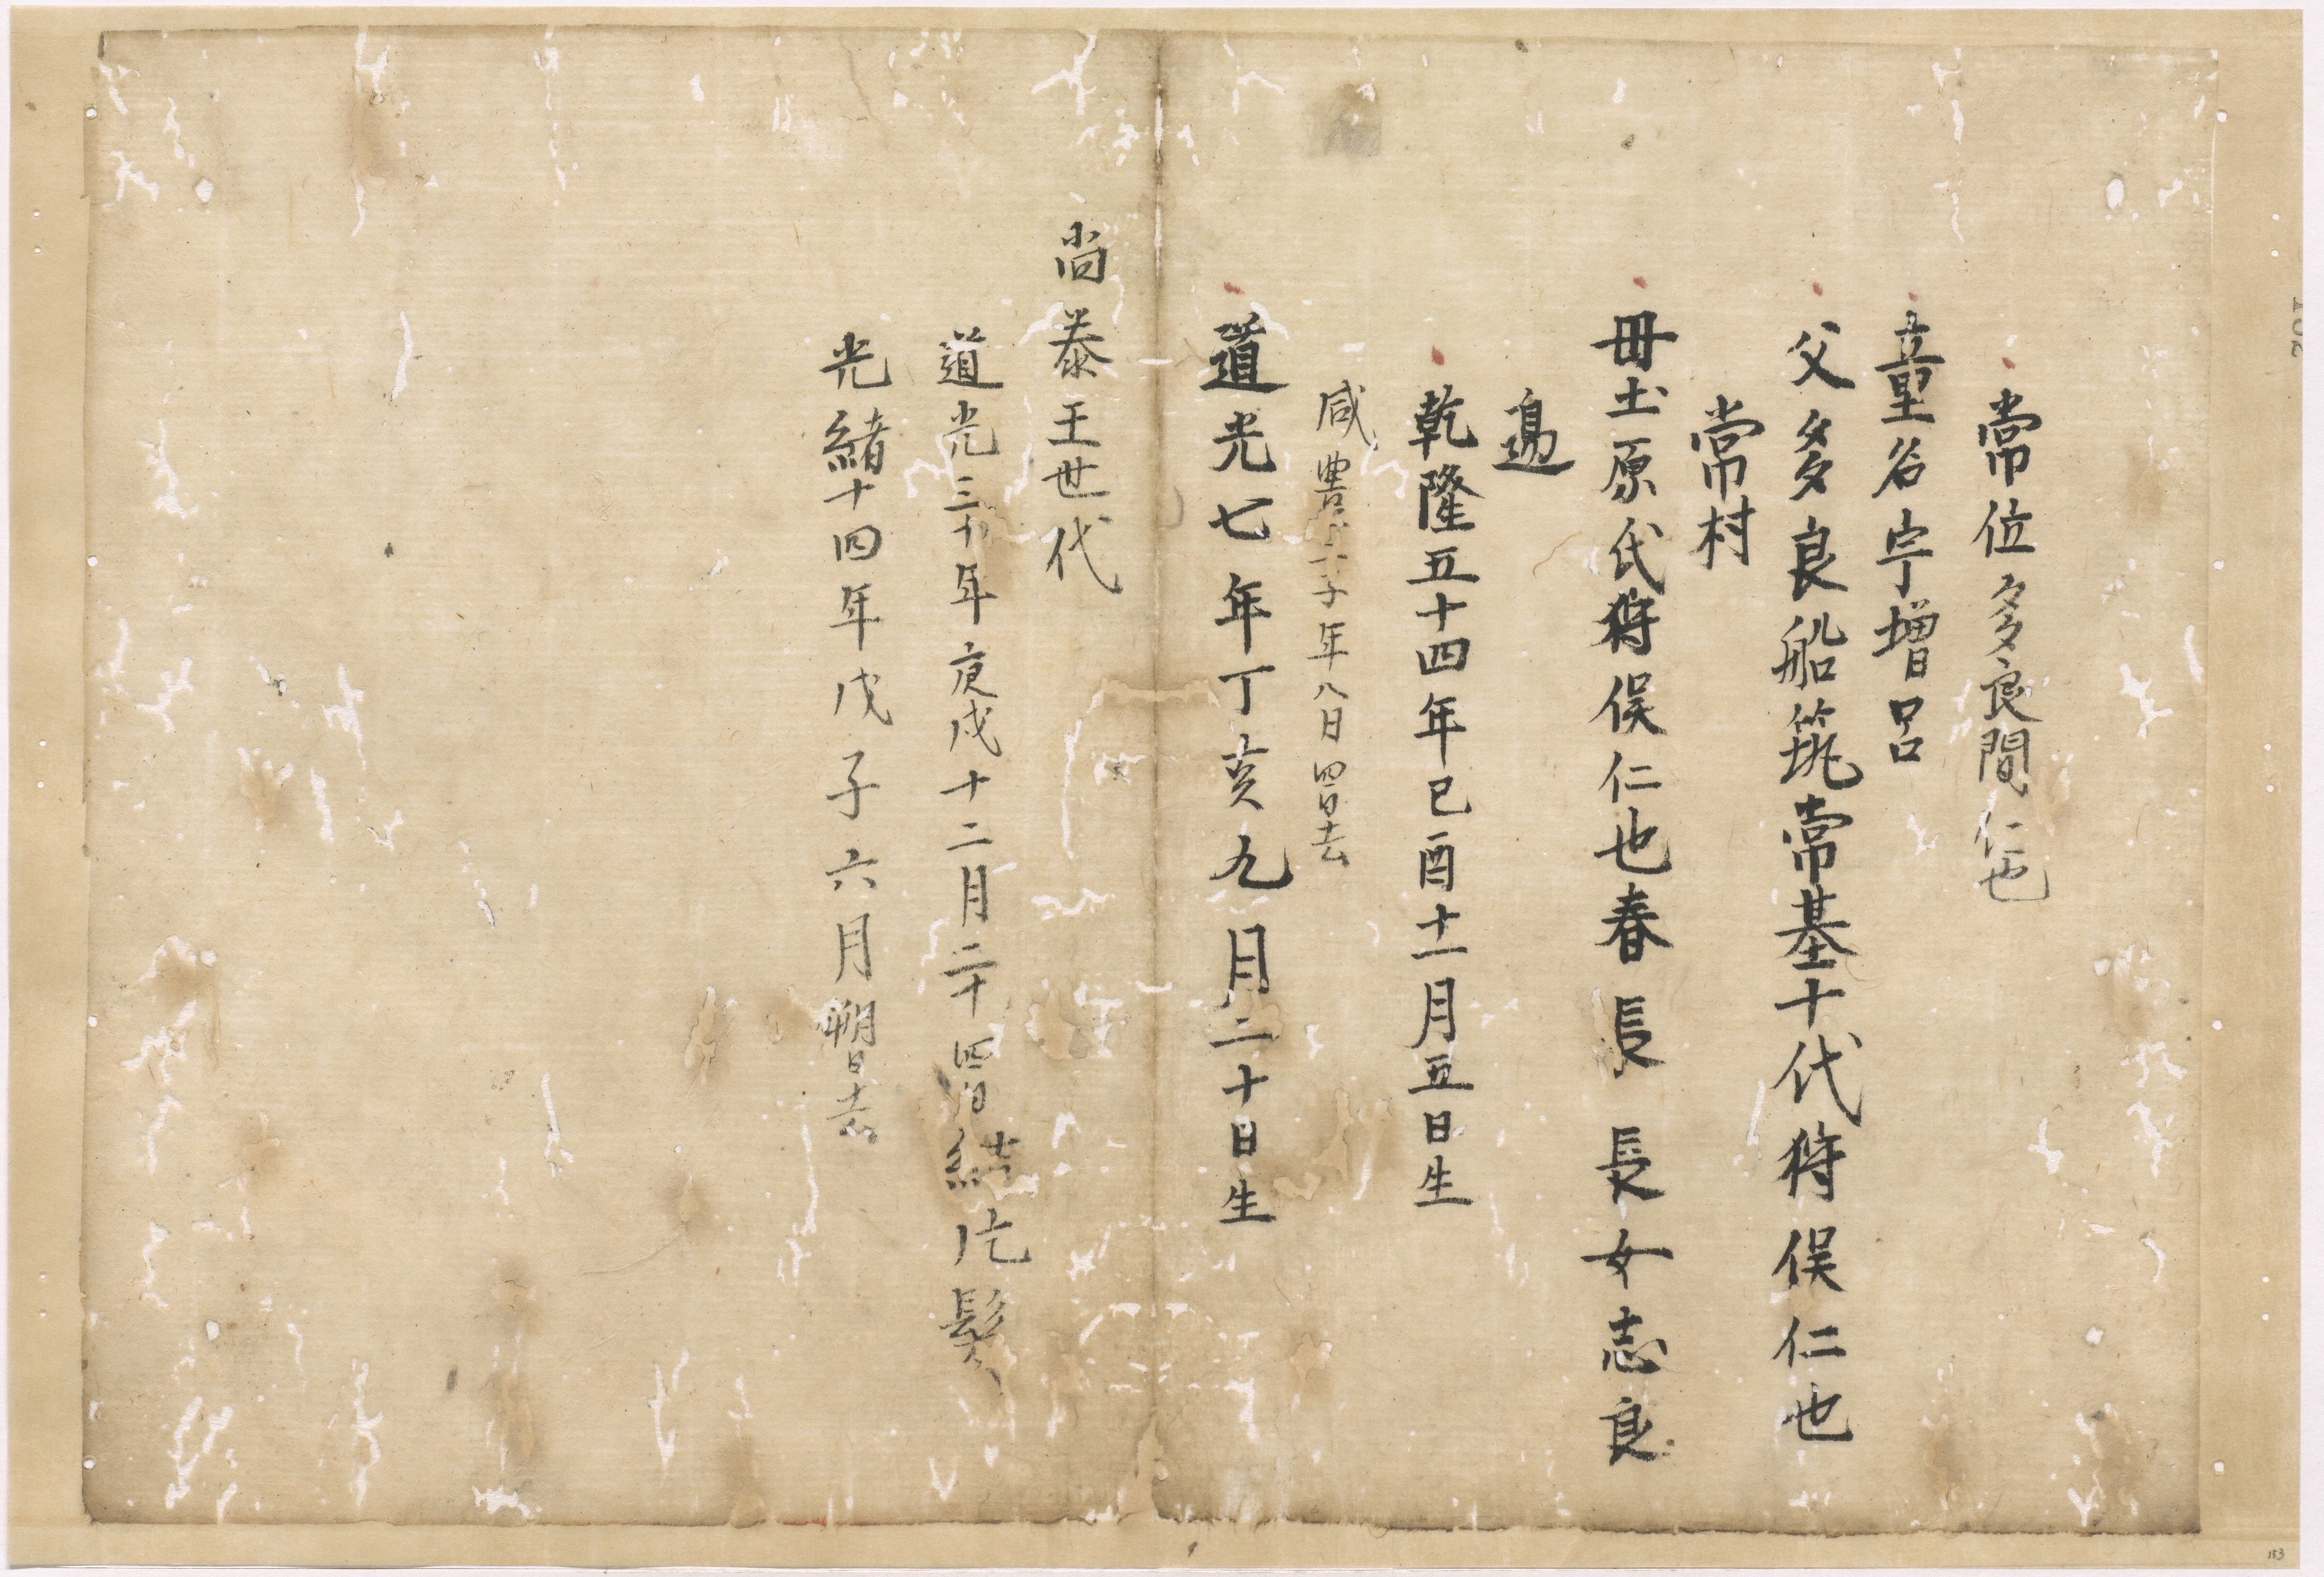 常位多良間仁也
童名宇増呂
父多良船筑常基十代狩俣仁也
常村
毋土原氏狩俣仁也春長長女志良
邉
乾隆五十四年己酉十一月五日生
咸豊 子年八日四日去
道光七年丁亥九月二十日生
尚泰王世代
道光三十年庚戌十二月二十四日結片髪
光緒十四年戊子六月朔日去
153